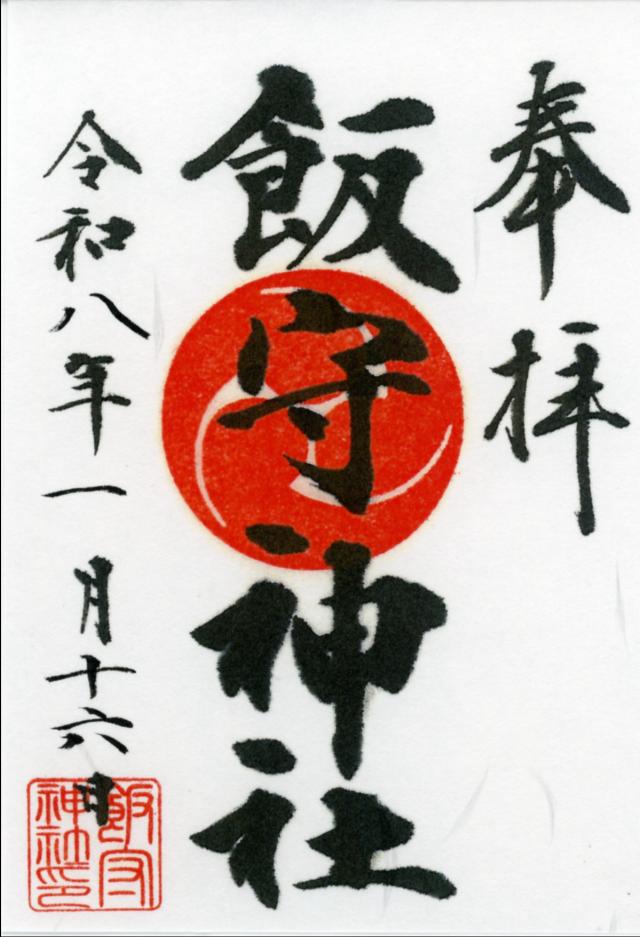 奉拝
飯守神社
令和八年一月十六日
飯守
神社印